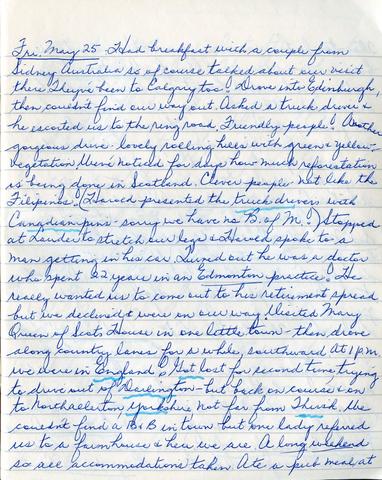 Fri. May 25 Had breakfast with a couple from
Sidney Australia so of course talked about our visit
there They've been to Calgary too! Drove into Edinburgh,
then couldn't find our way out. Asked a truck driver &
he escorted us to the ring road. Friendly people! Another
gorgeous drive - lovely rolling hills with green & yellow
vegetation Have noticed for days how much reforestation
is being done in Scotland. Clever people - Not like the
Filipinos! (Harold presented the truck drivers with
Canadian pins - sorry we have no B. of M.!) Stopped
at Lauder to stretch our legs & Harold spoke to a
man getting in his car. Turned out he was a doctor
who spent 22 years in an Edmonton practice! He
really wanted us to come out to his retirement spread
but we declined & were on our way. Visited Mary
Queen of Scots House in one little town - then drove
along country lanes for a while, southward At 1 p.m.
we were in England! Got lost for second time trying
to drive out of Darlington - but back on course & on
to Northallerton Yorkshire Not far from Thirsk. We
couldn't find a B & B in town but one lady referred
us to a farmhouse & here we are. A long weekend
so all accommodations taken. Ate a pub meal at